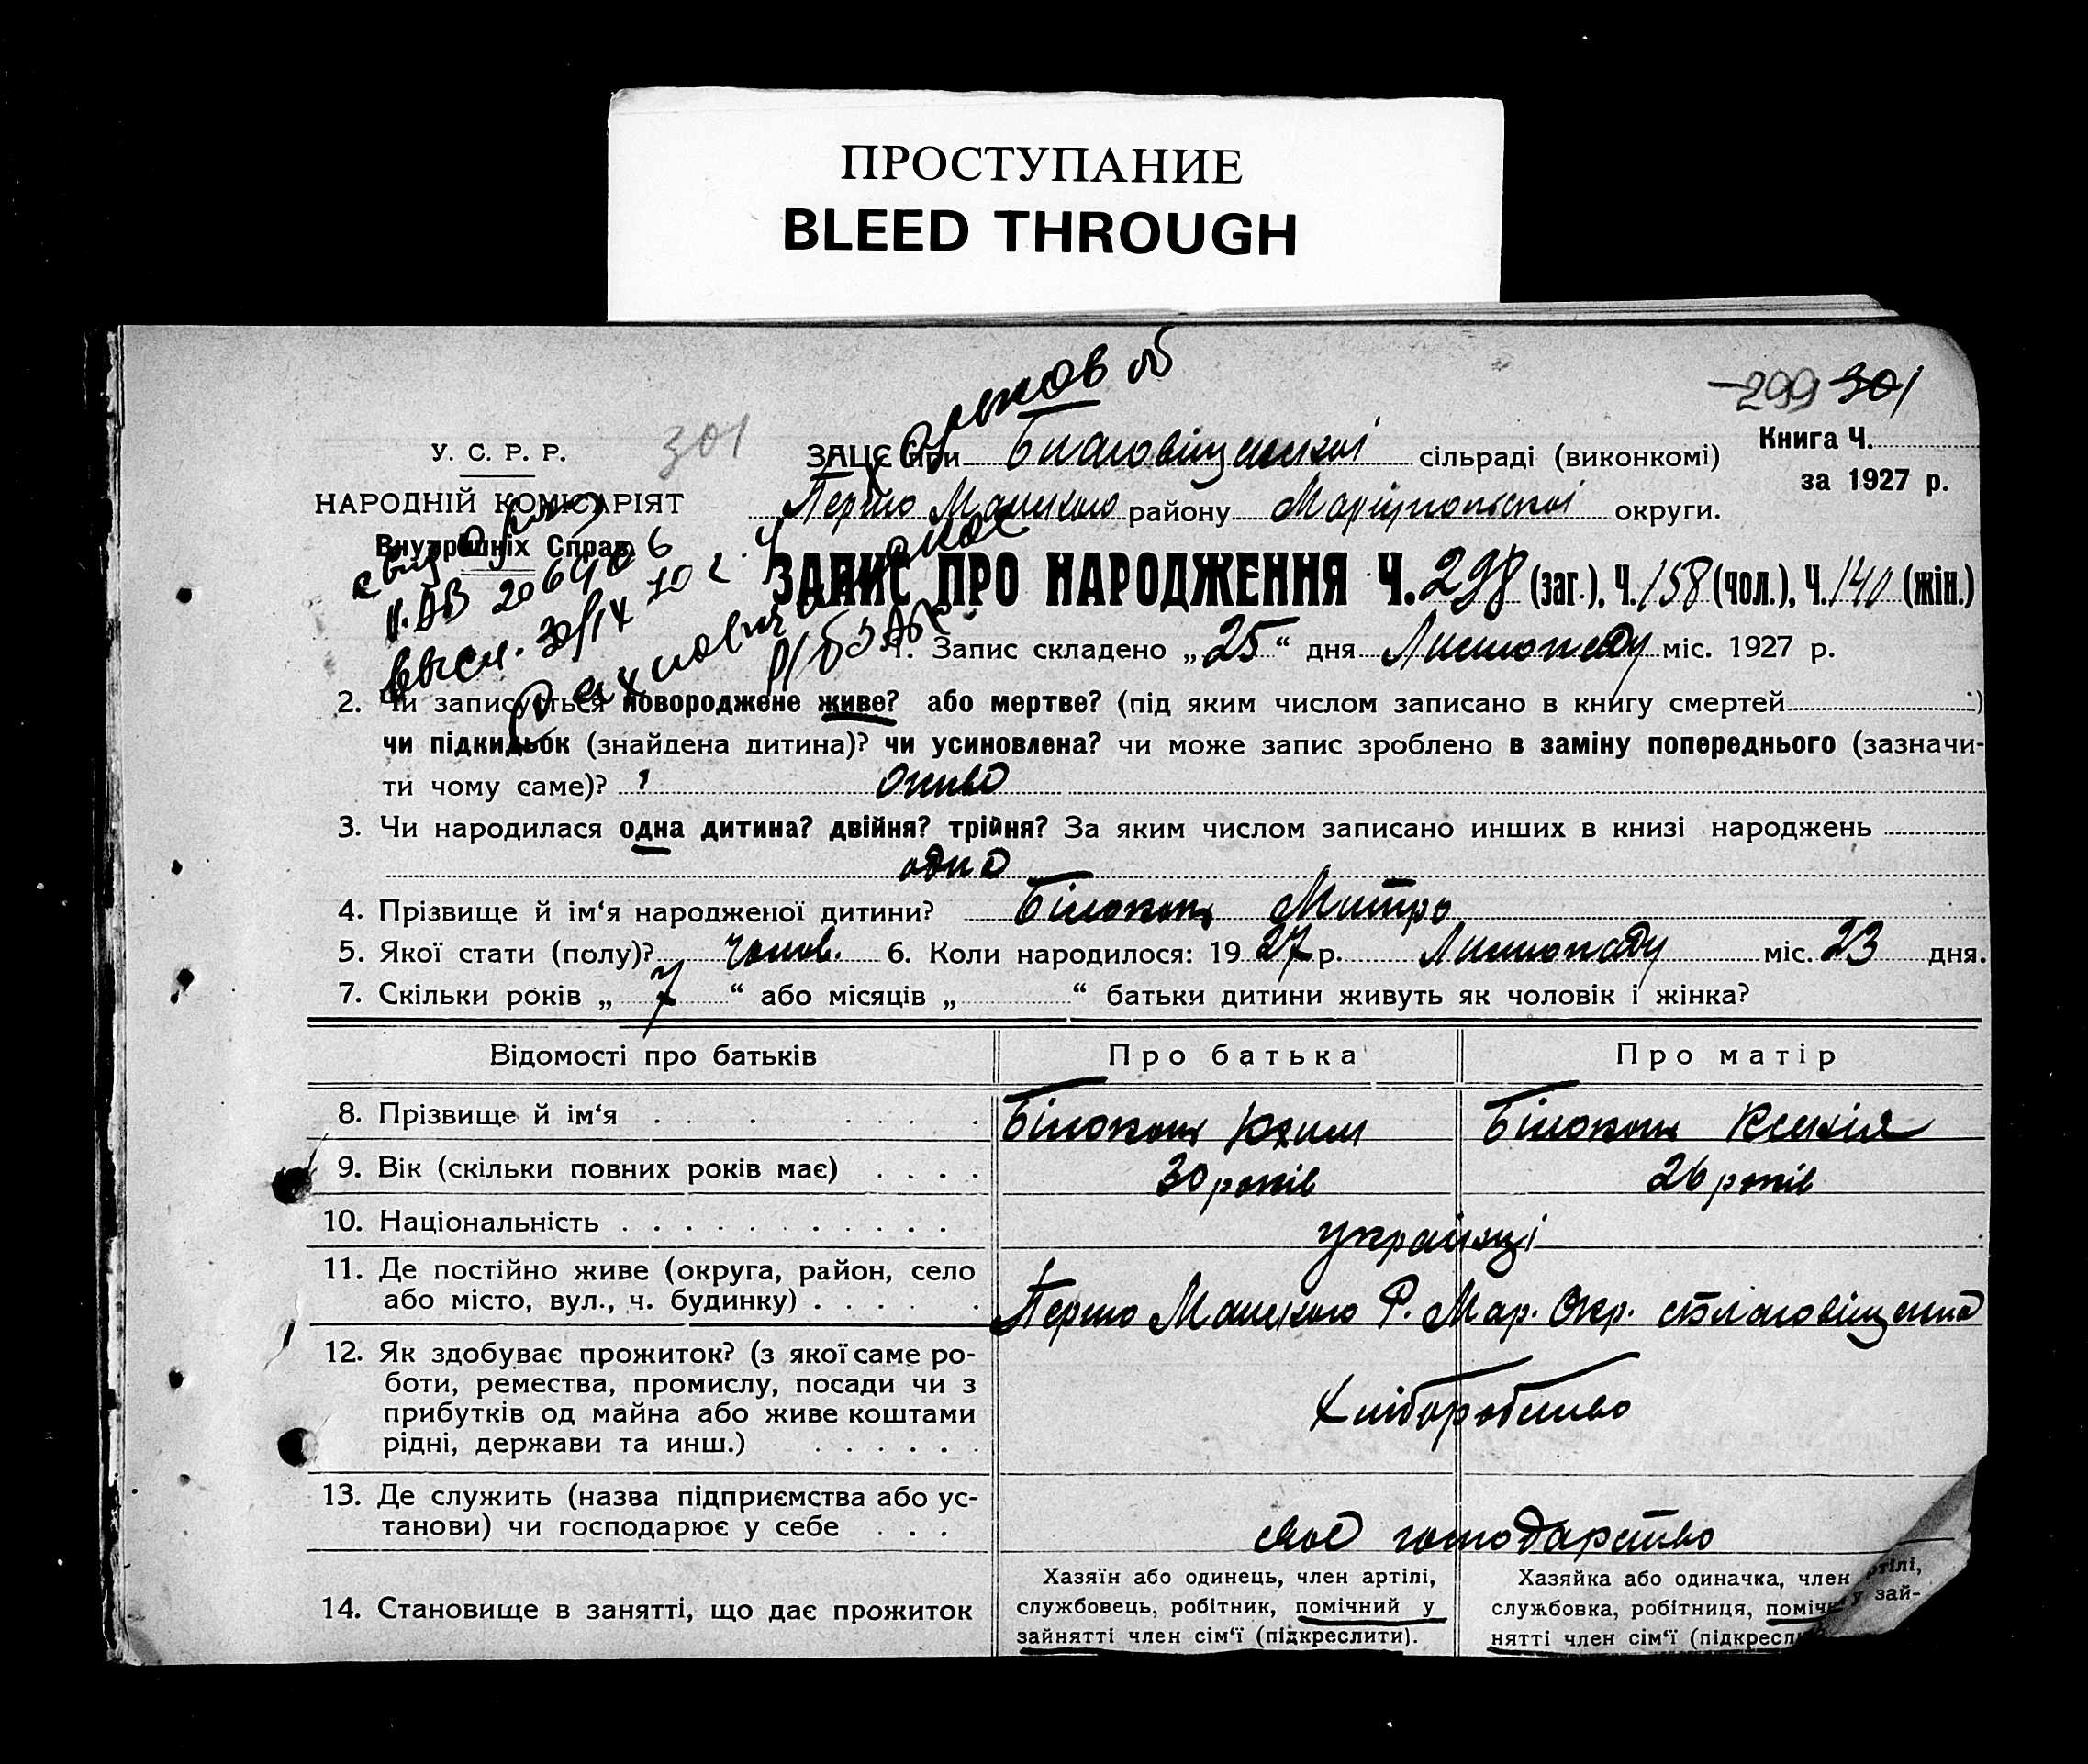 ПРОСТУПАНИЕ
BLEED THROUGH
-299 301
301
У. С. Р. Р.
НАРОДНІЙ КОМІСАРІЯТ
Внутрішніх Справ
ЗАЦС при Благовіщенскі сільраді (виконкомі)
Книга Ч.
за 1927 р.
Першо Манського району Маріупольської округи.
ЗАПИС ПРО НАРОДЖЕННЯ Ч. 298 (заг.), Ч. 158 (чол.), Ч. 140 (жін.)
1. Запис складено „25“ дня Листопаду міс. 1927 р.
2. Чи записується новороджене живе? або мертве? (під яким числом записано в книгу смертей )
чи підкидьок (знайдена дитина)? чи усиновлена? чи може запис зроблено в заміну попереднього (зазначи-
ти чому саме)?
3. Чи народилася одна дитина? двійня? трійня? За яким числом записано инших в книзі народжень
одно
4. Прізвище й ім‘я народженої дитини? Білоконь Митро
5. Якої стати (полу)? чолов. 6. Коли народилося: 1927 р. Листопаду міс. 23 дня.
7. Скільки років „ 7 “ або місяців „ “ батьки дитини живуть як чоловік і жінка?
Відомості про батьків Про батька Про матір
8. Прізвище й ім‘я Білоконь Юхим Білоконь Ксенія
9. Вік (скільки повних років має) 30 років 26 років
10. Національність українці
11. Де постійно живе (округа, район, село
або місто, вул., ч. будинку) Першо Манського Р. Мар. Окр. с Благовіщенка
12. Як здобуває прожиток? (з якої саме ро-
боти, ремества, промислу, посади чи з
прибутків од майна або живе коштами
рідні, держави та инш.) Хліборобство
13. Де служить (назва підприємства або ус-
танови) чи господарює у себе своє господарство
14. Становище в занятті, що дає прожиток
Хазяїн або одинець, член артілі,
службовець, робітник, помічний у
зайнятті член сім‘ї (підкреслити).
Хазяйка або одиначка, член артілі,
службовка, робітниця, поміч у зай-
нятті член сім‘ї (підкресл